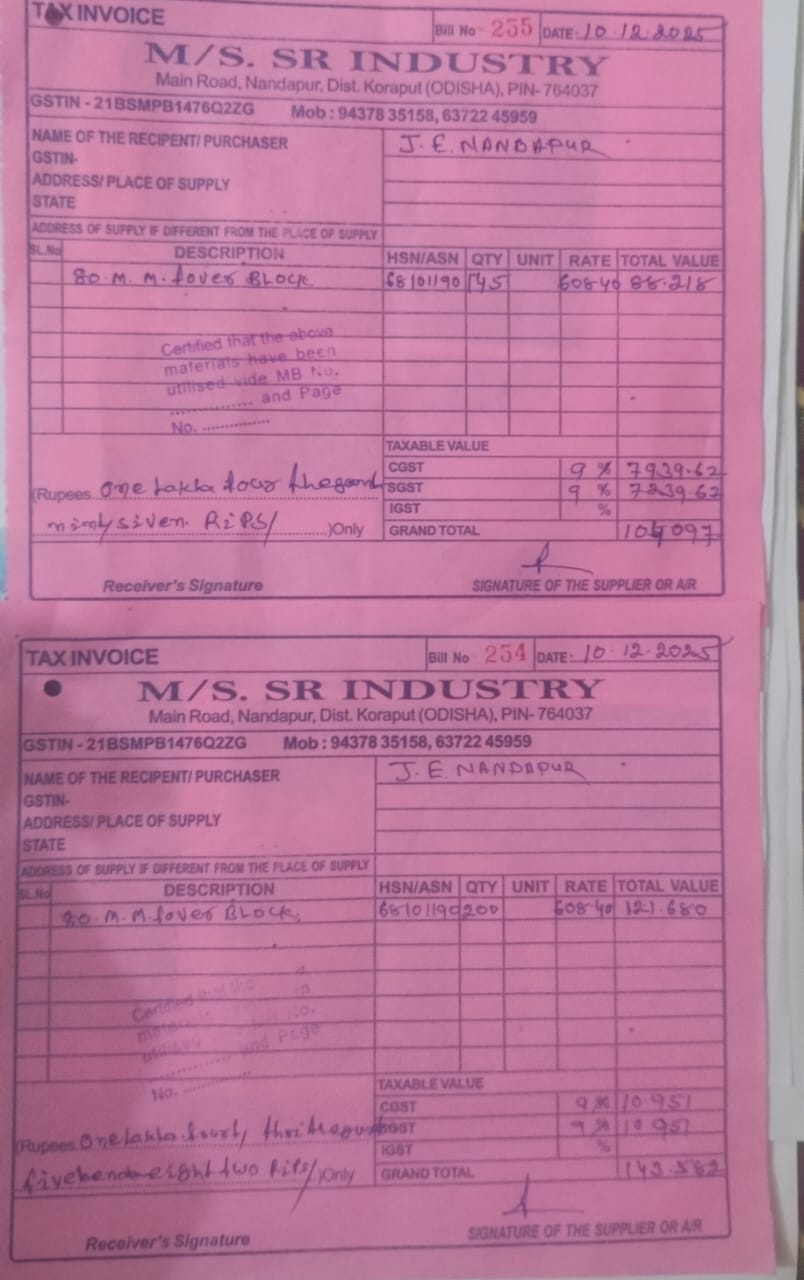 TAX INVOICE
Bill No - 255 DATE: 10.12.2025
M/S. SR INDUSTRY
Main Road, Nandapur, Dist. Koraput (ODISHA), PIN- 764037
GSTIN - 21BSMPB1476Q2ZG Mob : 94378 35158, 63722 45959
NAME OF THE RECIPENT/ PURCHASER J.E. NANDAPUR
GSTIN-
ADDRESS/ PLACE OF SUPPLY
STATE
ADDRESS OF SUPPLY IF DIFFERENT FROM THE PLACE OF SUPPLY
SL.No DESCRIPTION HSN/ASN QTY UNIT RATE TOTAL VALUE
80.M.M. fover BLOCK 68101190 145 608.40 88.218
Certified that the above
materials have been
utilised vide MB No.
.............. and Page
No. ..............
TAXABLE VALUE
CGST 9 % 7939.62
SGST 9 % 7939.62
IGST %
(Rupees one lakha four thegoand
ninty siven. RiPS/ ............)Only
GRAND TOTAL 104097
Receiver's Signature SIGNATURE OF THE SUPPLIER OR A/R
TAX INVOICE
Bill No 254 DATE: 10.12.2025
M/S. SR INDUSTRY
Main Road, Nandapur, Dist. Koraput (ODISHA), PIN- 764037
GSTIN - 21BSMPB1476Q2ZG Mob : 94378 35158, 63722 45959
NAME OF THE RECIPENT/ PURCHASER J.E. NANDAPUR
GSTIN-
ADDRESS/ PLACE OF SUPPLY
STATE
ADDRESS OF SUPPLY IF DIFFERENT FROM THE PLACE OF SUPPLY
SL.No DESCRIPTION HSN/ASN QTY UNIT RATE TOTAL VALUE
80.M.M. fover BLOCK 68101190 200 608.40 121.680
Certified that the
utilised No.
.............. and Page
No. ..............
TAXABLE VALUE
CGST 9 % 10951
SGST 9 % 10951
IGST %
(Rupees one lakha fourty
five eight two RiPS/)Only
GRAND TOTAL 143.582
Receiver's Signature SIGNATURE OF THE SUPPLIER OR A/R